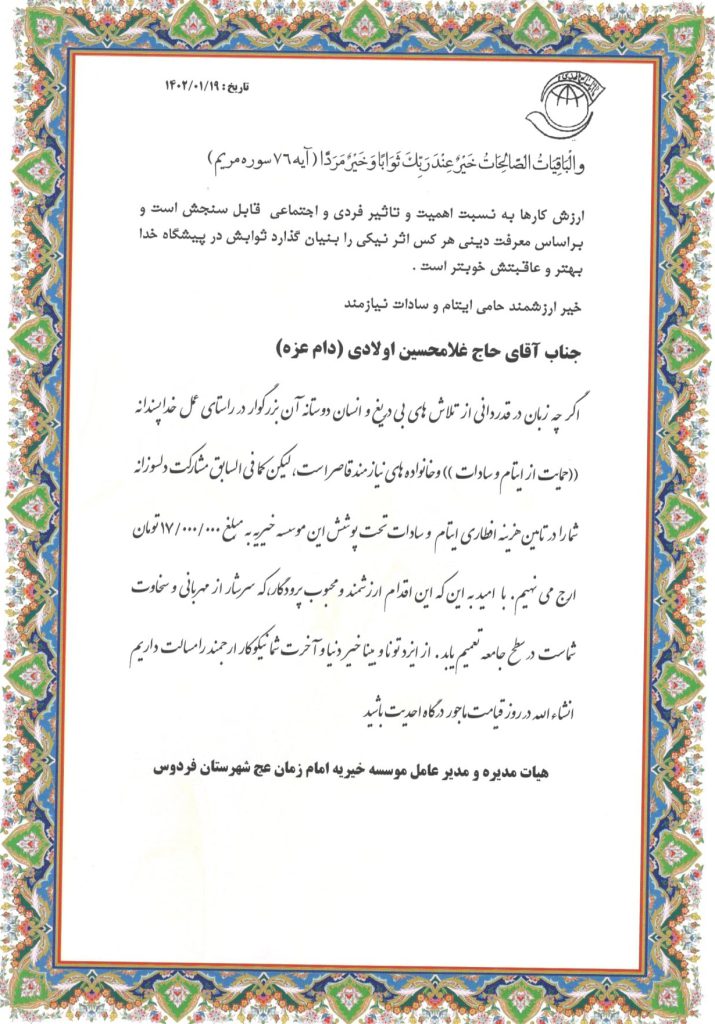 تاریخ : ۱۴۰۲/۰۱/۱۹
وَالْبَاقِيَاتُ الصَّالِحَاتُ خَيْرٌ عِنْدَ رَبِّكَ ثَوَابًا وَخَيْرٌ مَرَدًّا (آیه ۷۶ سوره مریم)
ارزش کارها به نسبت اهمیت و تاثیر فردی و اجتماعی قابل سنجش است و
براساس معرفت دینی هر کس اثر نیکی را بنیان گذارد ثوابش در پیشگاه خدا
بهتر و عاقبتش خوبتر است .
خیر ارزشمند حامی ایتام و سادات نیازمند
جناب آقای حاج غلامحسین اولادی (دام عزه)
اگر چه زبان در قدردانی از تلاش های بی دریغ و انسان دوستانه آن بزرگوار در راستای عمل خداپسندانه
((حمایت از ایتام و سادات )) وخانواده های نیازمند قاصراست، لیکن کمافی السابق مشارکت دلسوزانه
شمارا در تامین هزینه افطاری ایتام و سادات تحت پوشش این موسسه خیریه به مبلغ ۱۷/۰۰۰/۰۰۰تومان
ارج می نهیم. با امید به این که این اقدام ارزشمند و محبوب پرودگار،که سرشار از مهربانی و سخاوت
شماست در سطح جامعه تعمیم یابد. از ایزد تونا و بینا خیر دنیا و آخرت شما نیکوکار ارجمند رامسالت داریم
انشاء الله در روز قیامت ماجور درگاه احدیت باشید
هیات مدیره و مدیر عامل موسسه خیریه امام زمان عج شهرستان فردوس